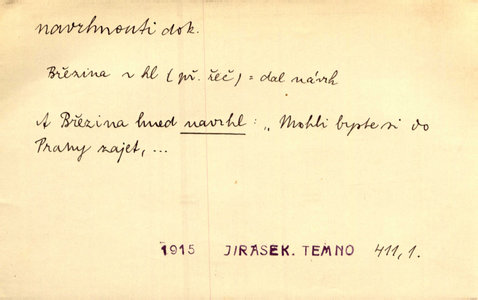 navrhnouti dok.
Březina n hl (př. řeč) = dal návrh
A Březina hned navrhl: „Mohli byste si do
Prahy zajet, ...
1915 JIRÁSEK. TEMNO 411,1.